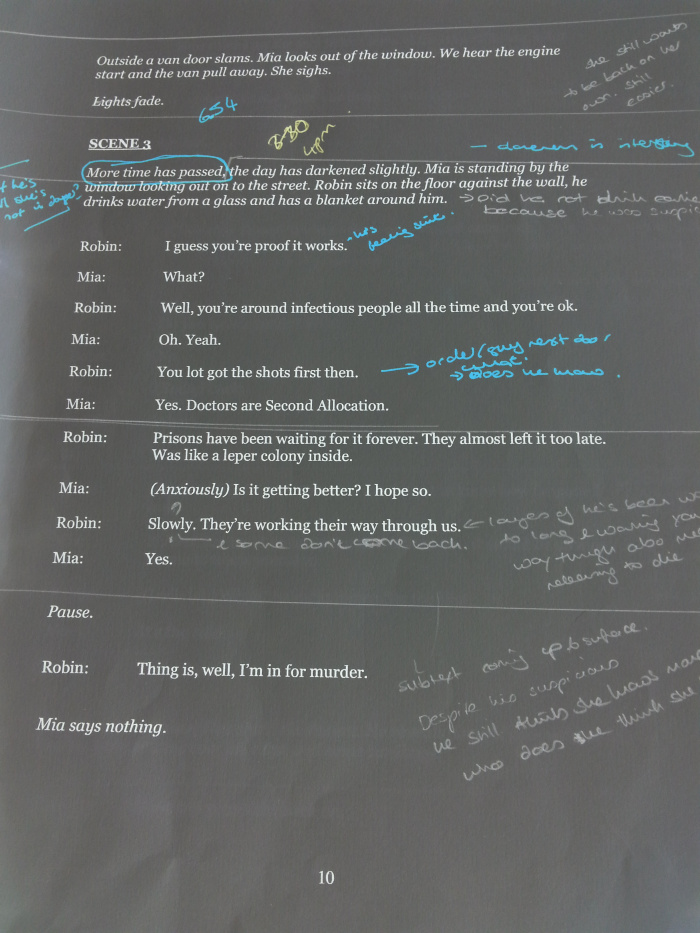 Outside a van door slams. Mia looks out of the window. We hear the engine
start and the van pull away. She sighs.
she still wants
to be back on her
own. still
easier.
Lights fade.
654
SCENE 3
330
4pm
- darkness is
More time has passed, the day has darkened slightly. Mia is standing by the
window looking out on to the street. Robin sits on the floor against the wall, he
drinks water from a glass and has a blanket around him. → Did he not drink
because he was
he's
she's
not in danger?
Robin: I guess you're proof it works. he's
feeling
Mia: What?
Robin: Well, you're around infectious people all the time and you're ok.
Mia: Oh. Yeah.
→ order / guy next door
Robin: You lot got the shots first then.
→ does he know.
Mia: Yes. Doctors are Second Allocation.
Robin: Prisons have been waiting for it forever. They almost left it too late.
Was like a leper colony inside.
Mia: (Anxiously) Is it getting better? I hope so.
?
Robin: Slowly. They're working their way through us. ← he's been
to long & waiting
& some don't come back.
way through also
releasing to die
Mia: Yes.
Pause.
subtext coming up to surface.
Robin: Thing is, well, I'm in for murder.
Despite his suspicions
he still thinks she knows
who does she think
Mia says nothing.
10